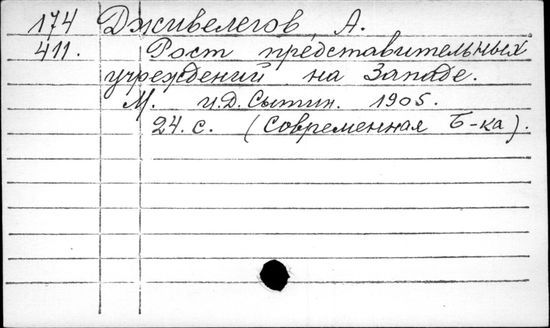 174 Дживелегов, А.
411. Рост представительных
учреждений на Западе.
М. И.Д. Сытин. 1905.
24. с. (Современная Б-ка).